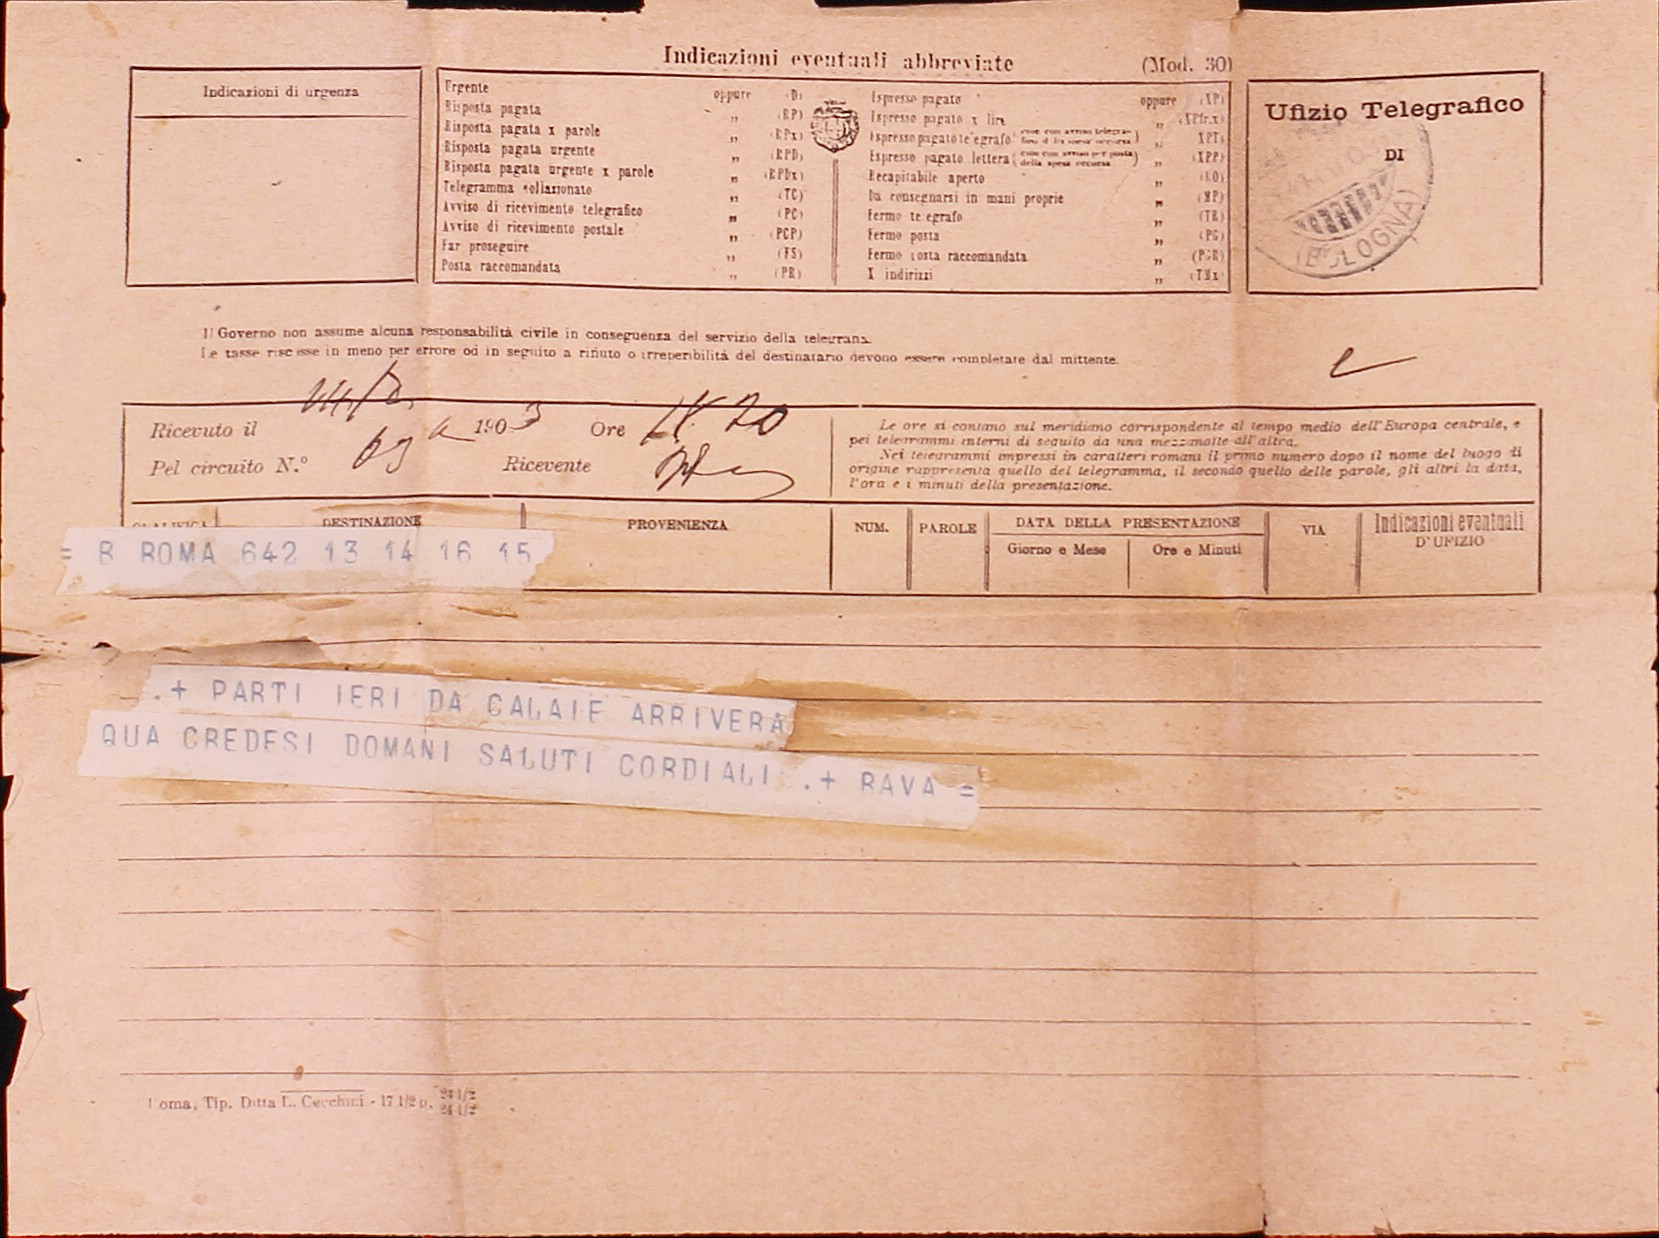 Indicazioni eventuali abbreviate (Mod. 30)
Indicazioni di urgenza
Urgente oppure (D)
Risposta pagata „ (RP)
Risposta pagata x parole „ (RPx)
Risposta pagata urgente „ (RPD)
Risposta pagata urgente x parole „ (RPDx)
Telegramma collazionato „ (TC)
Avviso di ricevimento telegrafico „ (PC)
Avviso di ricevimento postale „ (PCP)
Far proseguire „ (FS)
Posta raccomandata „ (PR)
Espresso pagato oppure (XP)
Espresso pagato x lire „ (XPfr.x)
Espresso pagato telegrafo „ XPT)
Espresso pagato lettera „ (XPP)
Recapitabile aperto „
Da consegnarsi in mani proprie „ (MP)
Fermo telegrafo „ (TR)
Fermo posta „ (PG)
Fermo posta raccomandata „ (PGR)
X indirizzi „ (TMx)
Ufizio Telegrafico
DI
(BOLOGNA)
Il Governo non assume alcuna responsabilità civile in conseguenza del servizio della telegrafia.
Le tasse riscosse in meno per errore od in seguito a rifiuto o irreperibilità del destinatario devono essere completate dal mittente.
Ricevuto il 1903 Ore 20
Pel circuito N.° 69 Ricevente
Le ore si contano sul meridiano corrispondente al tempo medio dell'Europa centrale, e
pei telegrammi interni di seguito da una mezzanotte all'altra.
Nei telegrammi impressi in caratteri romani il primo numero dopo il nome del luogo di
origine rappresenta quello del telegramma, il secondo quello delle parole, gli altri la data,
l'ora e i minuti della presentazione.
QUALIFICA DESTINAZIONE PROVENIENZA NUM. PAROLE DATA DELLA PRESENTAZIONE VIA Indicazioni eventuali
D'UFIZIO
Giorno e Mese Ore e Minuti
= B ROMA 642 13 14 16 15
.+ PARTI IERI DA CALAIE ARRIVERA
QUA CREDESI DOMANI SALUTI CORDIALI .+ RAVA =
Roma, Tip. Ditta L. Cecchini - 17 1/2 p. 24 1/2
24 1/2